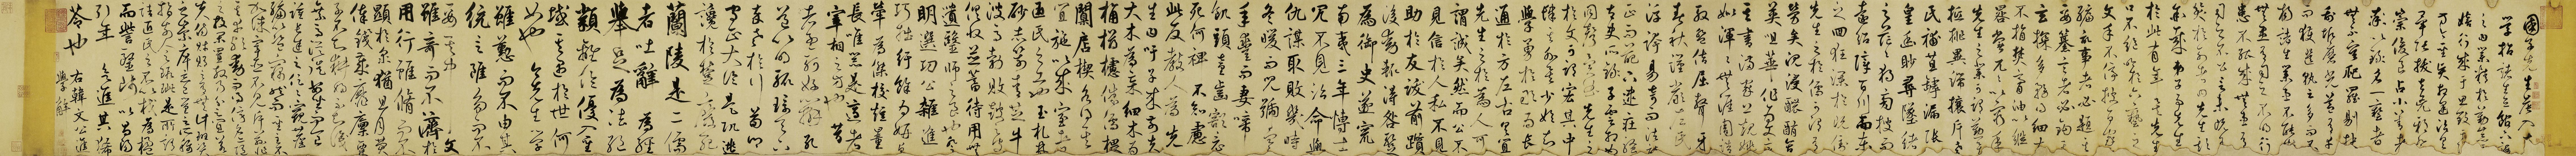 國子先生晨入太
學招諸生立館下誨
之曰業精於勤荒於
嬉行成于思毀于隨
方今聖賢相逢治具
畢張拔去兇邪
登崇俊良占小善者
率以錄名一藝者
無不庸爬羅剔抉
刮垢磨光蓋有幸
而獲選孰云多而不
揚諸生業患不能精
無患有司之不明行
患不能成無患有
司之不公言未既有
笑於列者曰先生欺
余哉弟子事先生
於茲有年矣先生
口不絕吟於六藝之
文手不停披於百家之
編紀事者必提其
要纂言者必鉤其
玄貪多務得細大
不捐焚膏油以繼
晷常兀兀以窮年
先生之業可謂勤矣
觝排異端攘斥佛老
補苴罅漏張
皇幽眇尋墜緒
之茫茫獨旁搜而
遠紹障百川而東
之迴狂瀾於既倒
先生之於儒可謂有
勞矣沈浸醲郁含
英咀華作為文章
其書滿家上規姚
姒渾渾無涯周誥
殷盤佶屈聱牙
春秋謹嚴左氏
浮誇易奇而法詩
正而葩下逮莊騷
太史所錄子雲相如
同工異曲先生之
於文可謂宏其中
肆其外矣少始知
學勇於敢為長
通於方左右具宜
先生之於為人可
謂誠矣然而公不
見信於人私不見
助於友跋前躓
後動輒得咎暫
為御史遂竄
南夷三年博士
冗不見治命與
仇謀取敗幾時
冬暖而兒號寒
年豐而妻啼
飢頭童齒豁竟
死何裨不知慮
此反教人為先
生曰吁子來前夫
大木為杗細木為
桷欂櫨侏儒椳
闑扂楔各得其
宜施以成室者
匠氏之工也玉札丹
砂赤箭青芝牛
溲馬勃敗鼓之皮
俱收並蓄待用無
遺者醫師之良也登
明選公雜進
巧拙紆餘為妍卓
犖為傑校短量
長唯器是適者
宰相之方也昔
者孟軻好辯孔
道以明轍環天下
卒老於行荀卿
守正大論是弘逃
讒於楚廢死
蘭陵是二儒
者吐辭為經
舉足為法絕
類離倫優入聖
域其遇於世何
如也今先生學
雖勤而不由其
統言雖多而不
要其中文
雖奇而不濟於
用行雖脩而不
顯於眾猶且月費
俸錢歲靡廩粟
子不知耕婦不知織
乘馬從徒安坐而食
踵常途之役役窺
陳編以盜竊然而聖主不
加誅宰臣不見斥茲非
其幸歟動而得謗名亦隨
之投閑置散乃分之宜
若夫商財賄之有亡計班資
之崇庳忘己量之所稱
指前人之瑕疵是所謂
詰匠氏之不以杙為楹
而訾醫師以昌陽
引年欲進其豨
苓也
右韓文公進
學解